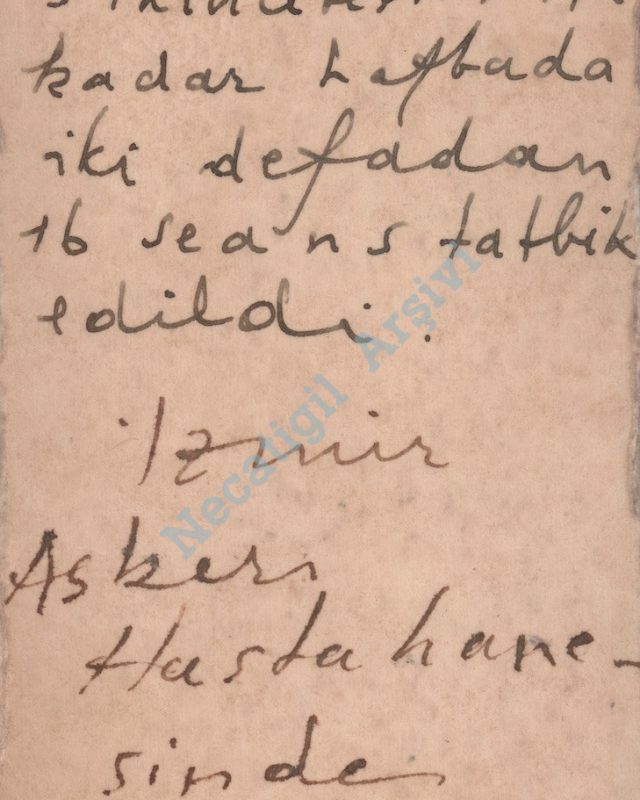 kadar haftada
iki defadan
16 seans tatbik
edildi.
İzmir
Askeri
Hastahane-
sinde
Necatigil Arşivi